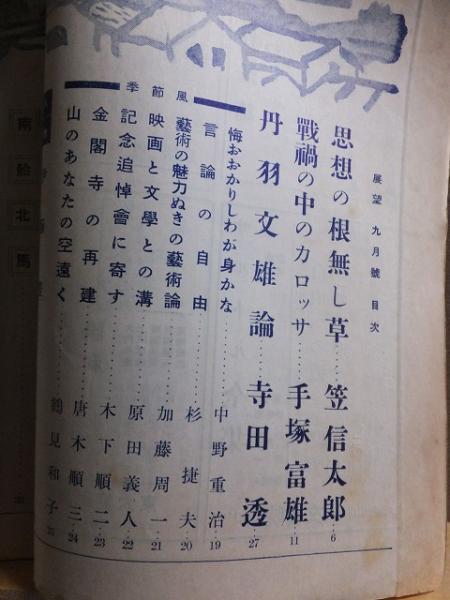 展望 九月號 目次
思想の根無し草……笠信太郎…6
戰禍の中のカロッサ……手塚富雄…11
丹羽文雄論……寺田透…27
悔おおかりしわが身かな……中野重治…19
言論の自由……杉捷夫…20
風 藝術の魅力ぬきの藝術論……加藤周一…21
節 映画と文學との溝……原田義人…22
季 記念追悼會に寄す……木下順二…23
金閣寺の再建……唐木順三…24
山のあなたの空遠く……鶴見和子…25
南船北馬